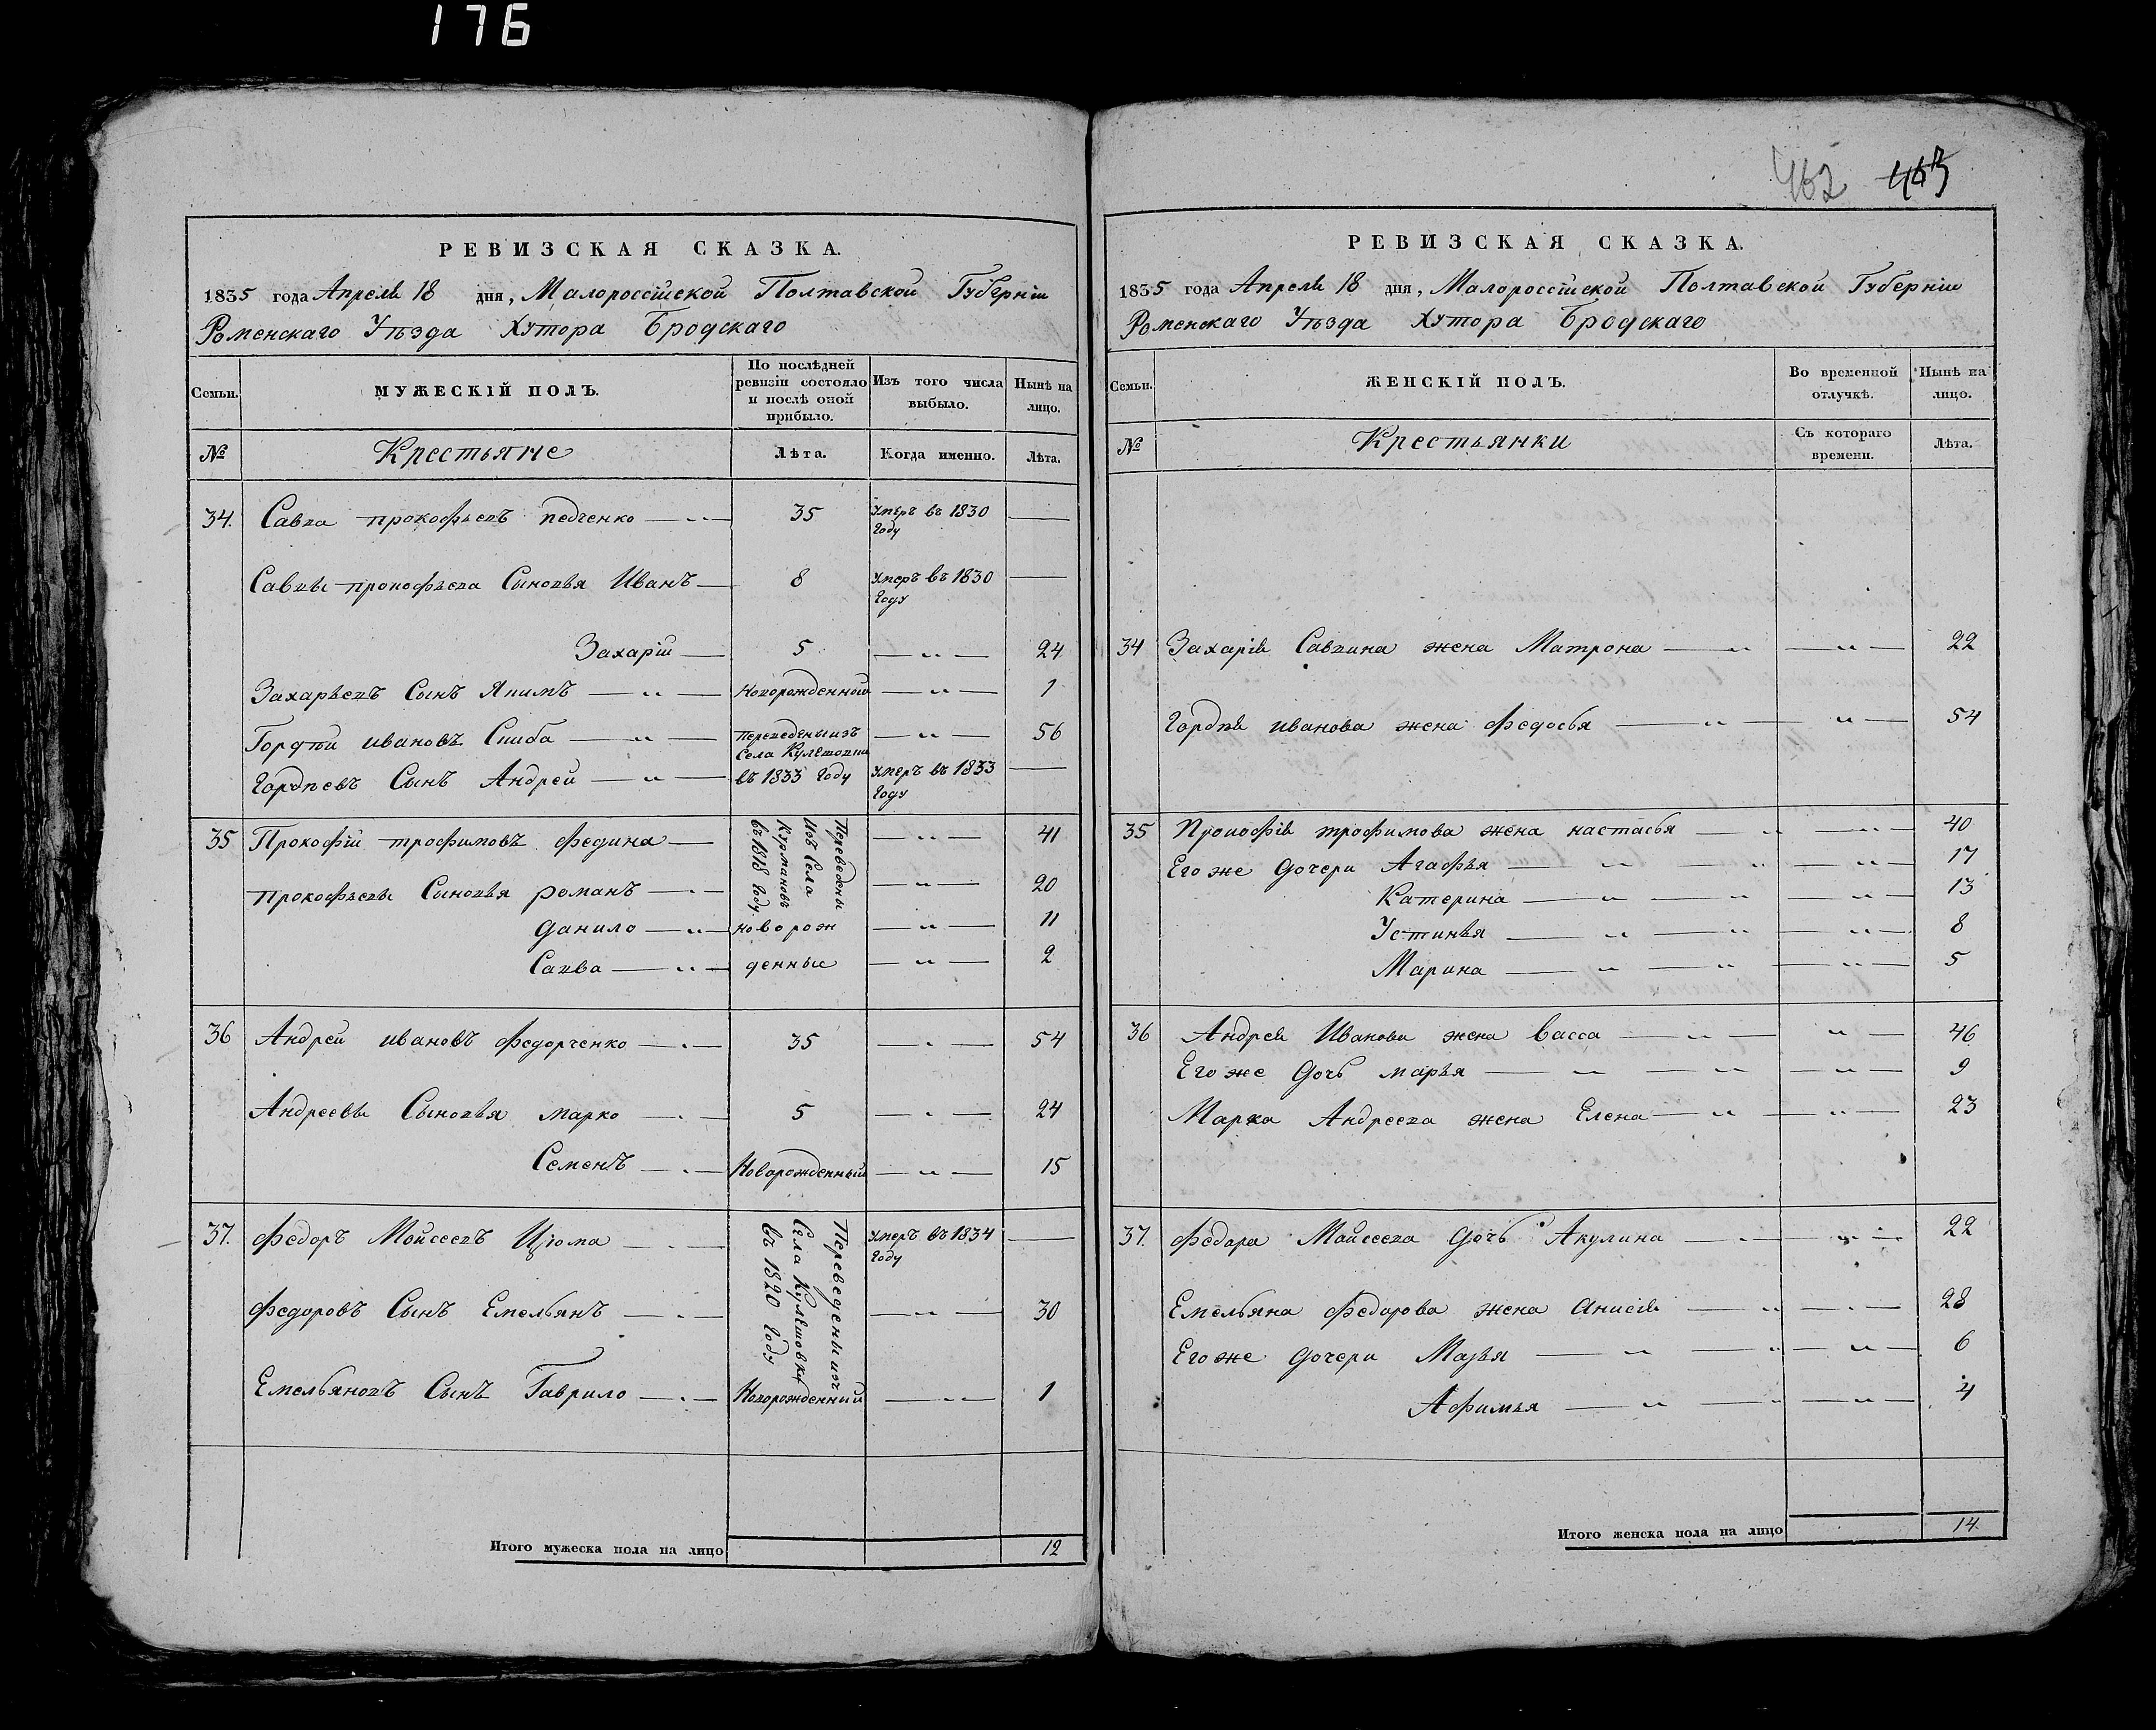 176
462 463
РЕВИЗСКАЯ СКАЗКА.
1835 года Апреля 18 дня, Малороссійской Полтавской Губерніи
Роменскаго Уѣзда Хутора Бродскаго
Семьи. МУЖЕСКІЙ ПОЛЪ. По послѣдней ревизіи состояло и послѣ оной прибыло. Изъ того числа выбыло. Нынѣ на лицо.
№ Крестьяне Лѣта. Когда именно. Лѣта.
34. Савва Прокофьевъ Педченко 35 Умеръ въ 1830 Году
Саввы Прокофьева Сыновья Иванъ 8 Умеръ въ 1830 Году
Захарій 5 24
Захарьевъ Сынъ Якимъ Новорожденный 1
Гордѣй Ивановъ Скиба Переведены изъ Села 56
Гордѣевъ Сынъ Андрей въ 1833 Году Умеръ въ 1833 Году
35 Прокофій Трофимовъ Федина Переведены Изъ Села Курмановъ въ 1818 Году 41
Прокофьевы Сыновья Романъ 20
Данило Новорож 11
Савва денные 2
36 Андрей Ивановъ Федорченко 35 54
Андреевы Сыновья Марко 5 24
Семенъ Новорожденный 15
37. Федоръ Мойсеевъ Цюма Переведены изъ Села Кулѣшовки въ 1820 Году Умеръ въ 1834 Году
Федоровъ Сынъ Емельянъ 30
Емельяновъ Сынъ Гаврило Новорожденный 1
Итого мужеска пола на лицо 12
РЕВИЗСКАЯ СКАЗКА.
1835 года Апреля 18 дня, Малороссійской Полтавской Губерніи
Роменскаго Уѣзда Хутора Бродскаго
Семьи. ЖЕНСКІЙ ПОЛЪ. Во временной отлучкѣ. Нынѣ на лицо.
№ Крестьянки Съ котораго времени. Лѣта.
34 Захарія Саввина жена Матрона 22
Гордѣя Иванова жена Федосья 54
35 Прокофія Трофимова жена Настасья 40
Его же Дочери Агафья 17
Катерина 13
Устинья 8
Марина 5
36 Андрея Иванова жена Васса 46
Его же Дочь Марья 9
Марка Андреева жена Елена 23
37. Федора Мойсеева Дочь Акулина 22
Емельяна Федорова жена Анисія 28
Его же Дочери Марья 6
Афимья 4
Итого женска пола на лицо 14.